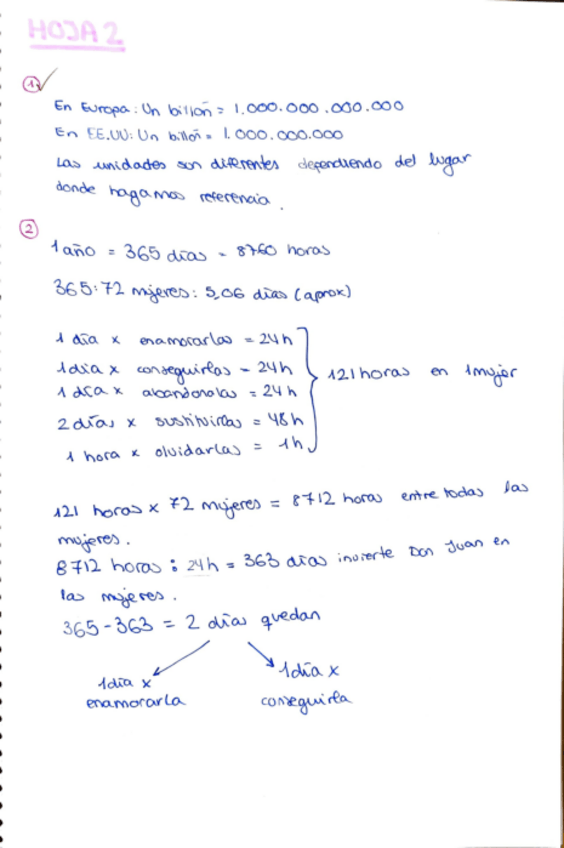 HOJA 2
1
En Europa: Un billón = 1.000.000.000.000
En EE.UU: Un billón = 1.000.000.000
Las unidades son diferentes dependiendo del lugar
donde hagamos referencia.
2
1 año = 365 días = 8760 horas
365:72 mujeres: 5,06 días (aprox)
1 día x enamorarlas = 24h
1 día x conseguirlas = 24h
1 día x abandonarlas = 24h
2 días x sustituirlas = 48h
1 hora x olvidarlas = 1h
121 horas en 1 mujer
121 horas x 72 mujeres = 8712 horas entre todas las
mujeres.
8712 horas : 24h = 363 días invierte Don Juan en
las mujeres.
365-363 = 2 días quedan
1 día x
enamorarla
1 día x
conseguirla